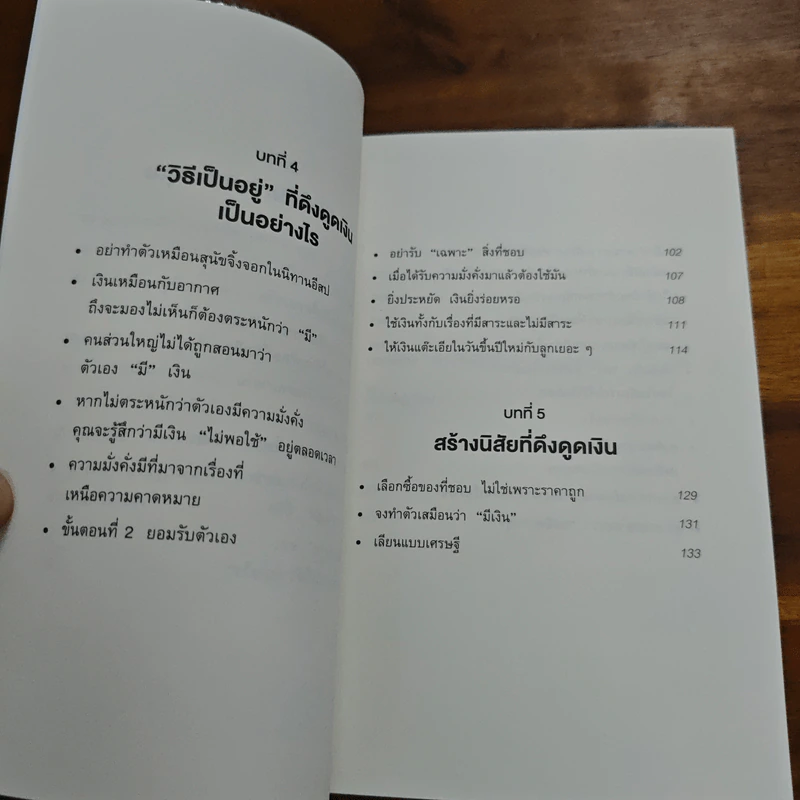 บทที่ 4
“วิธีเป็นอยู่” ที่ดึงดูดเงิน
เป็นอย่างไร
• อย่าทำตัวเหมือนสุนัขจิ้งจอกในนิทานอีสป
• เงินเหมือนกับอากาศ
ถึงจะมองไม่เห็นก็ต้องตระหนักว่า “มี”
• คนส่วนใหญ่ไม่ได้ถูกสอนมาว่า
ตัวเอง “มี” เงิน
• หากไม่ตระหนักว่าตัวเองมีความมั่งคั่ง
คุณจะรู้สึกว่ามีเงิน “ไม่พอใช้” อยู่ตลอดเวลา
• ความมั่งคั่งมีที่มาจากเรื่องที่
เหนือความคาดหมาย
• ขั้นตอนที่ 2 ยอมรับตัวเอง
• อย่ารับ “เฉพาะ” สิ่งที่ชอบ 102
• เมื่อได้รับความมั่งคั่งมาแล้วต้องใช้มัน 107
• ยิ่งประหยัด เงินยิ่งร่อยหรอ 108
• ใช้เงินทั้งกับเรื่องที่มีสาระและไม่มีสาระ 111
• ให้เงินแต๊ะเอียในวันขึ้นปีใหม่กับลูกเยอะ ๆ 114
บทที่ 5
สร้างนิสัยที่ดึงดูดเงิน
• เลือกซื้อของที่ชอบ ไม่ใช่เพราะราคาถูก 129
• จงทำตัวเสมือนว่า “มีเงิน” 131
• เลียนแบบเศรษฐี 133